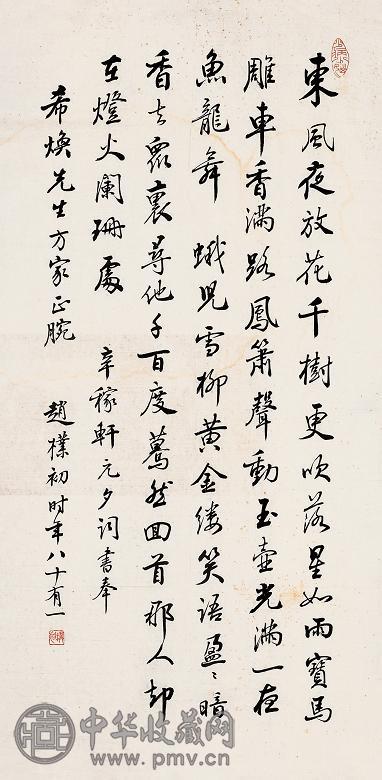 東風夜放花千樹更吹落星如雨寶馬
雕車香滿路鳳簫聲動玉壺光滿一夜
魚龍舞 蛾兒雪柳黄金縷笑語盈〻暗
香去眾裏尋他千百度驀然回首那人却
在燈火闌珊處 辛稼軒元夕詞書奉
希煥先生方家正腕 趙樸初时年八十有一
中华收藏网
www.pmv.cn